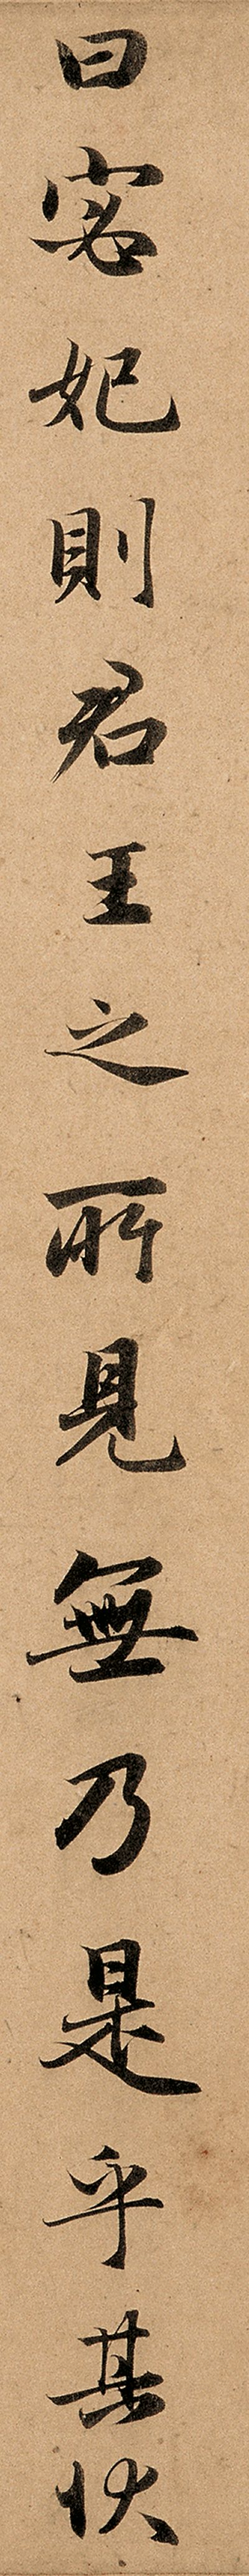 曰宓妃則君王之所見無乃是乎其状